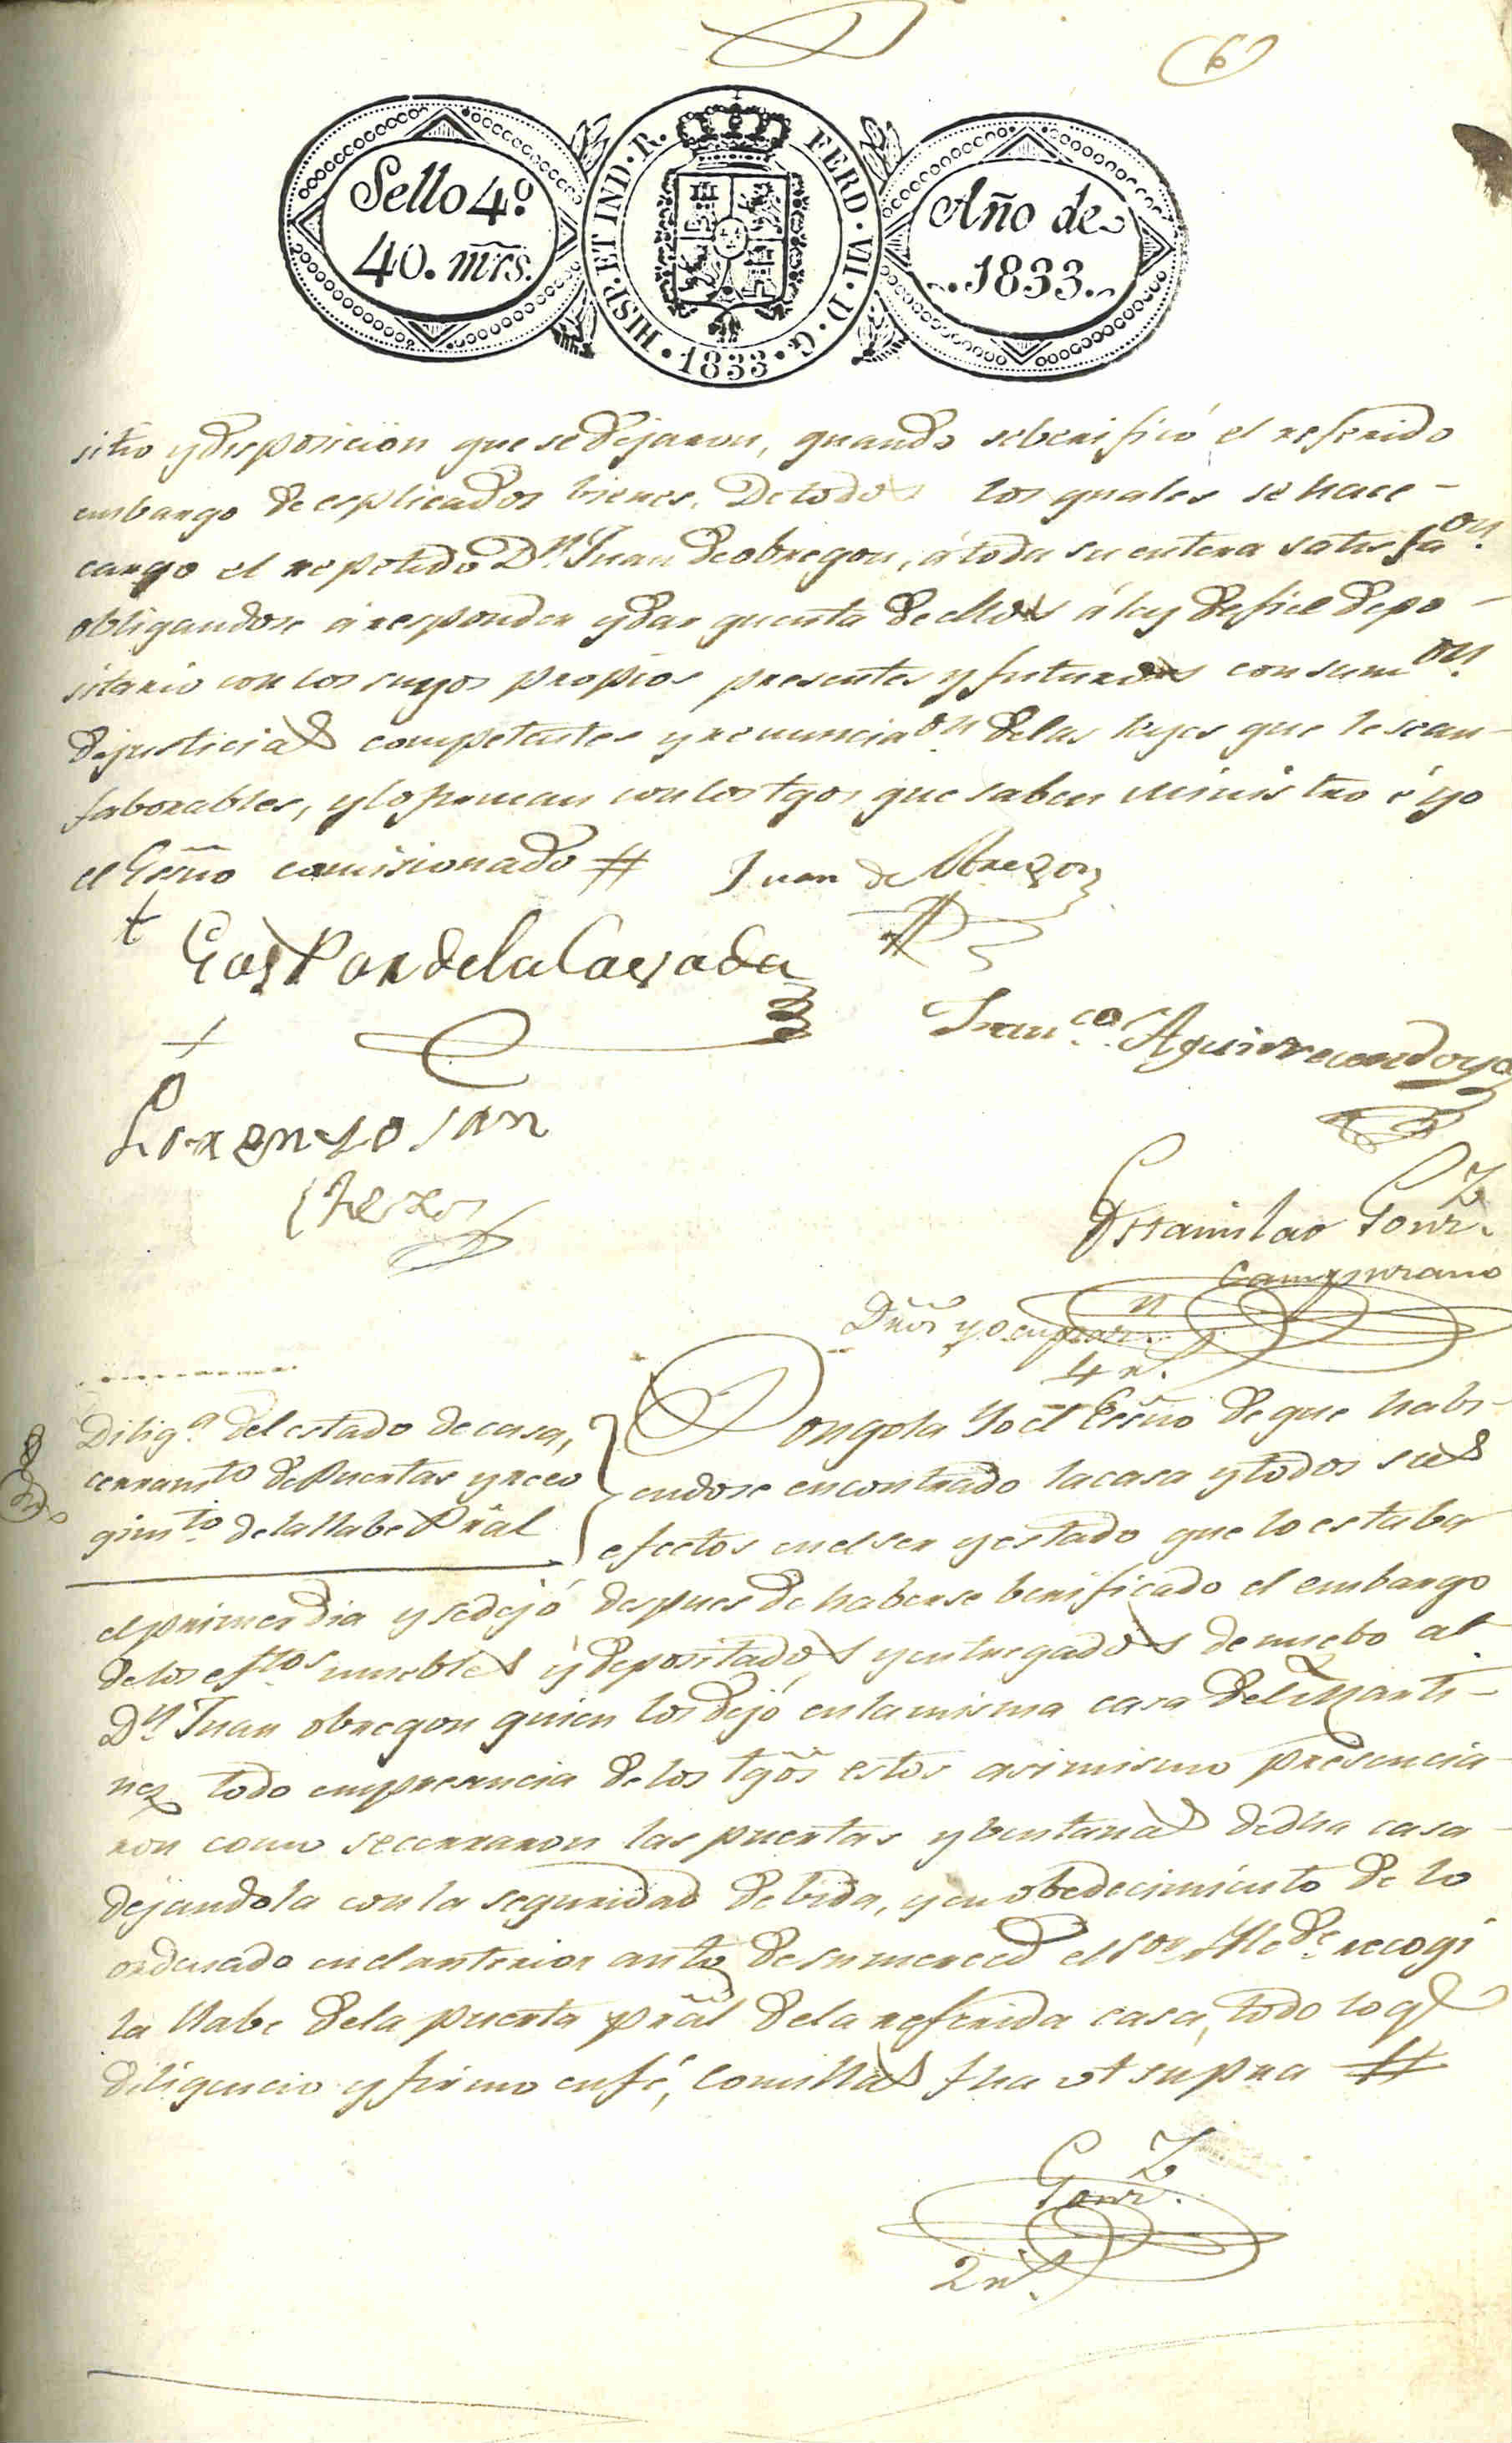 6
Sello 4º
40. mrs.
HISP. ET IND. R. FERD. VII. D. G.
1833
Año de
1833.
sitio y disposicion que se dejaron, quando se berifico el referido
embargo de esplicados bienes. De todos los quales se hace
cargo el repetido Dn. Juan de obregon, á toda su entera satisfaon.
obligandose á responder y dar quenta de ellos á ley de fiel depo-
sitario con los suyos propios presentes y futuros con sumon.
de justicias competentes y renunciaon de las leyes que le sean
faborables, y lo firman con los tgos que saben Ministro é yo
el Esno comisionado #
Juan de Obregon
Gaspar de la Casada
Franco. Aguirrecendoya
Lorenzo San
Estanislao Gonz.
Camposano
Dros y ocupar.n
4 rs.
Diliga. del estado de casa,
cerramto de Puertas y reco
gimto. de la llabe Pral
Pongola Yo el Esno de que habi-
endose encontrado la casa y todos sus
efectos en el ser y estado que lo estaba
el primer dia y se dejó despues de haberse berificado el embargo
de los eftos muebles y depositados y entregados de nuebo al
Dn. Juan obregon quien los dejó en la misma casa del Marti-
nez todo em presencia de los tgos estos asimismo presencia
ron como se cerraron las puertas y bentanas de dha casa
dejandola con la seguridad debida, y en obedecimiento de lo
ordenado en el anterior auto de su merced el Sor Alcde. recogi
la llabe de la puerta pral de la referida casa, todo lo q.
diligencio y firmo en fé, Comillas fha ut supra #
Gonz.
2 rs.